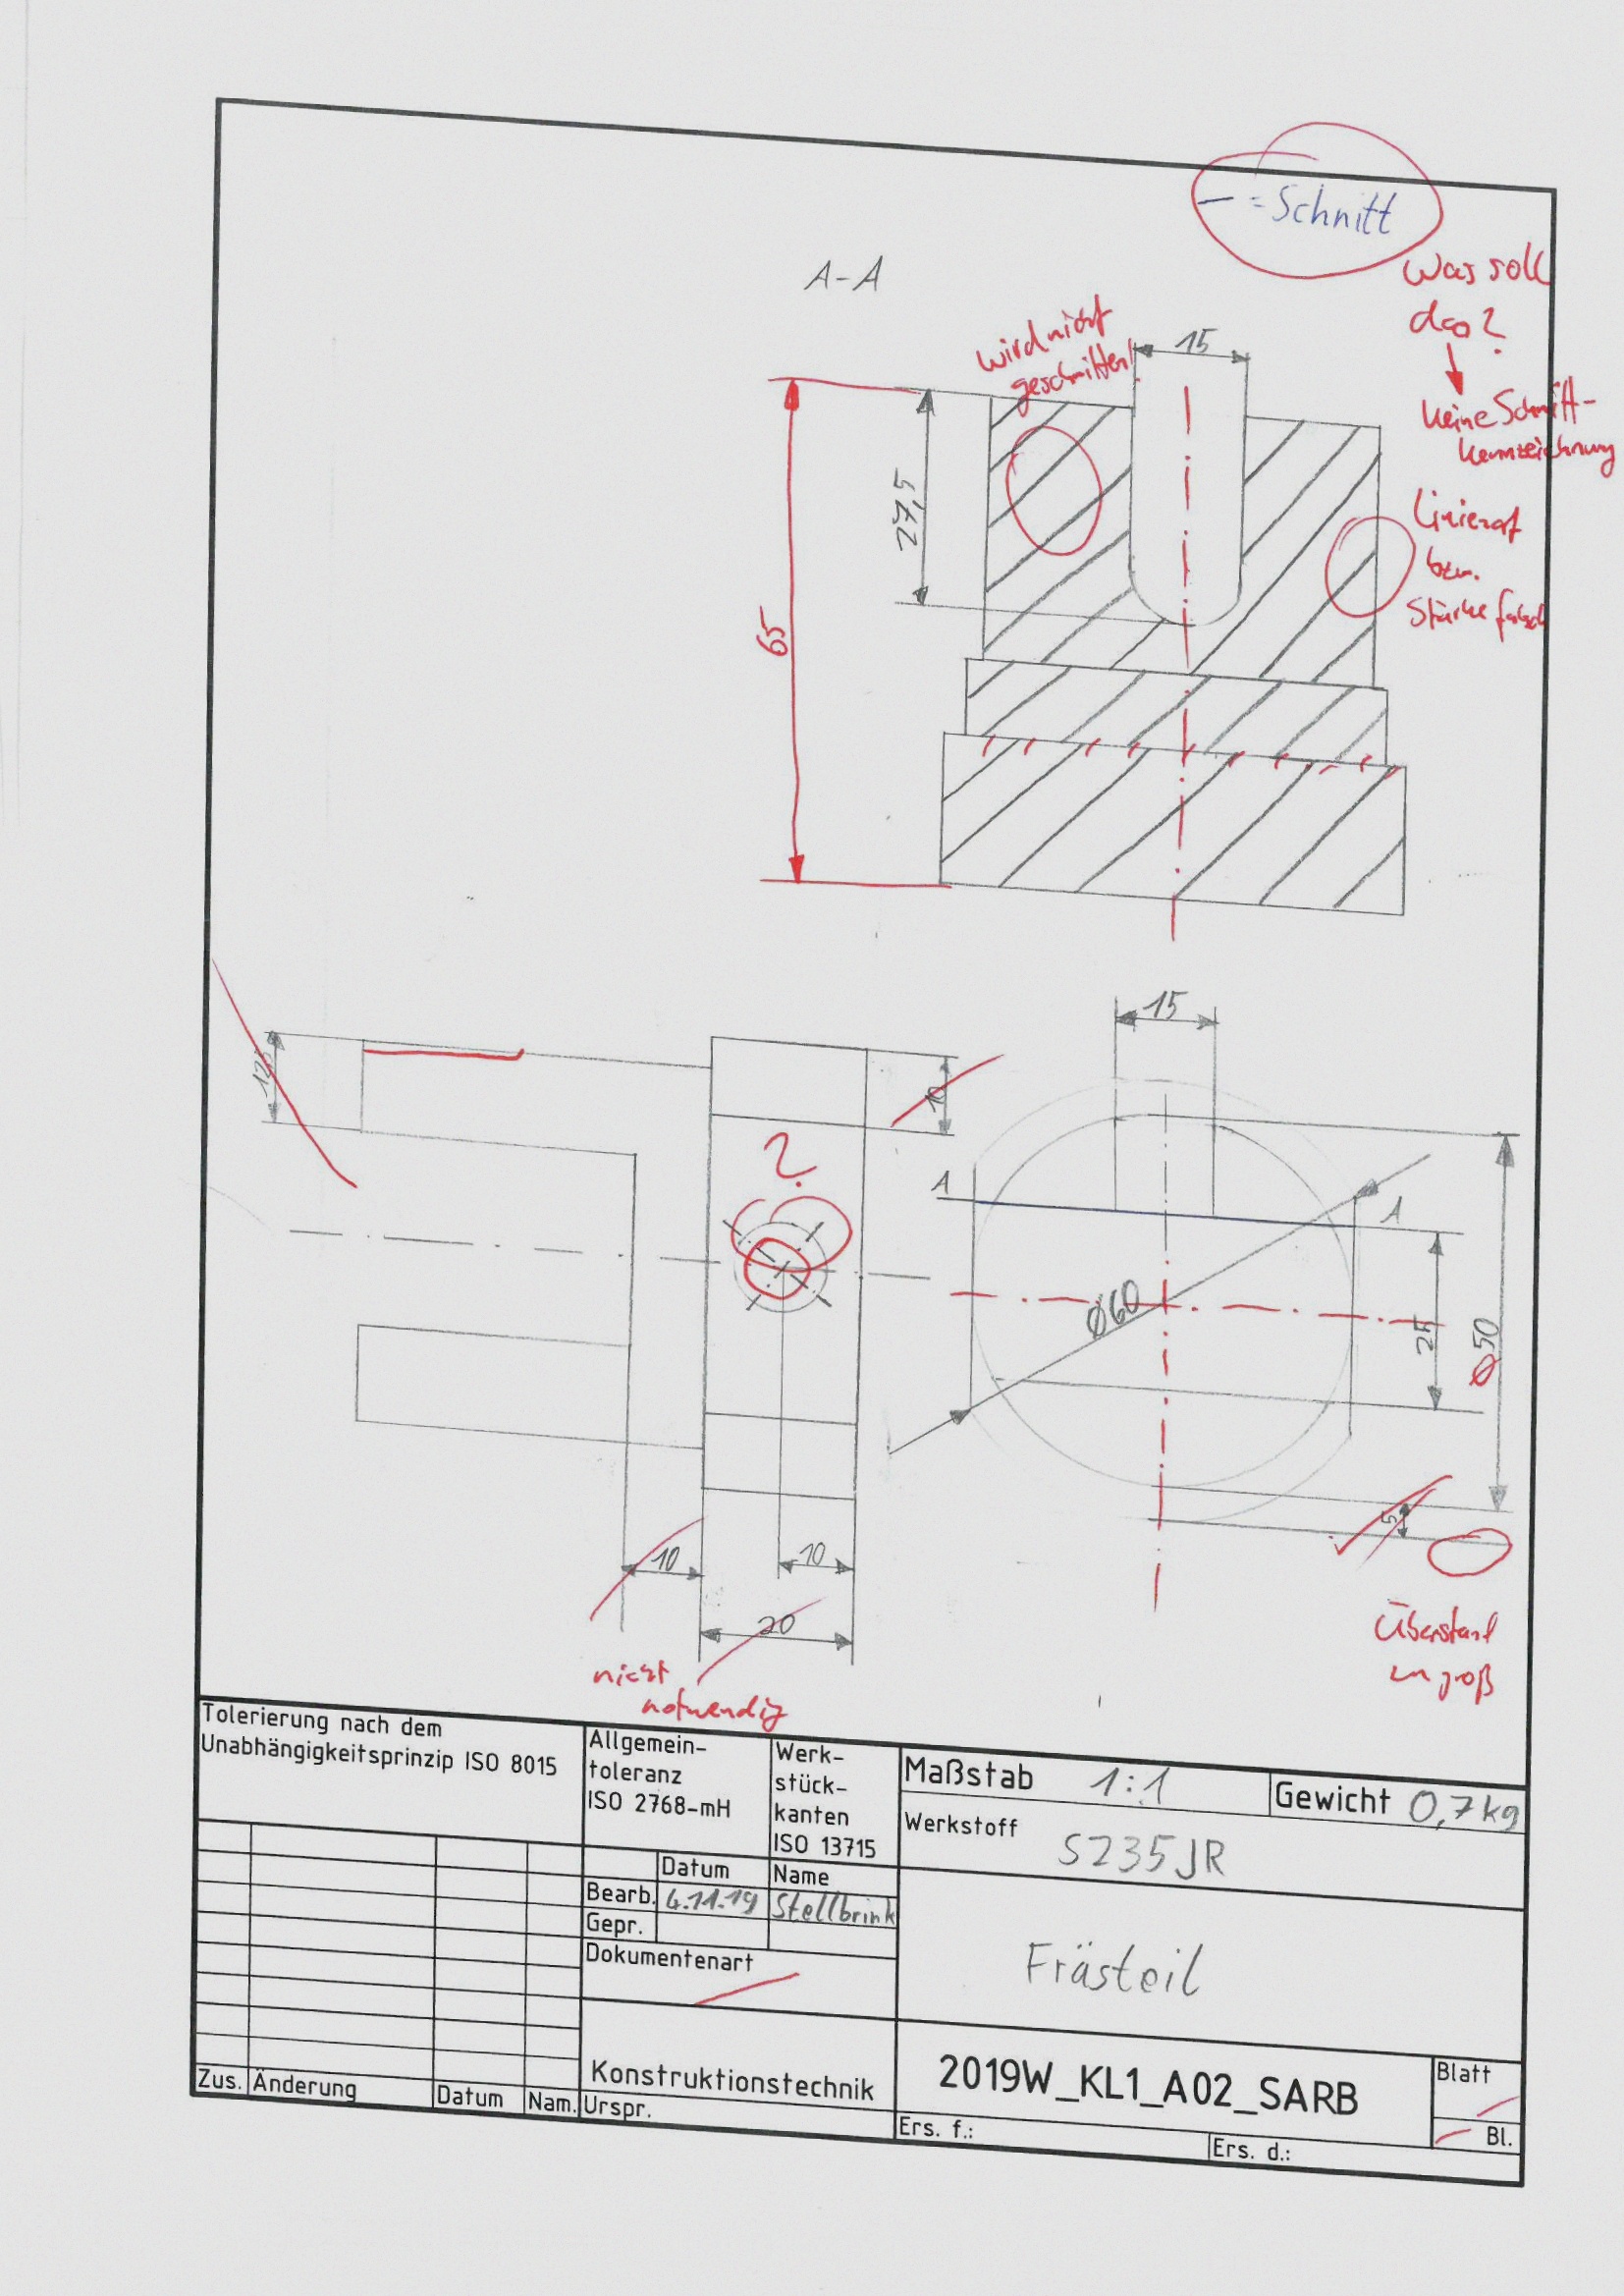 – = Schnitt
Was soll
das?
keine Schnitt-
kennzeichnung
A-A
wird nicht
geschnitten!
15
27,5
65
Linienart
bzw.
Stärke falsch
15
12,5
10
?
A
A
Ø60
25
Ø50
5
10
10
20
nicht
notwendig
Überstand
zu groß
Tolerierung nach dem
Unabhängigkeitsprinzip ISO 8015
Allgemein-
toleranz
ISO 2768-mH
Werk-
stück-
kanten
ISO 13715
Maßstab 1:1
Gewicht 0,7kg
Werkstoff S235JR
Datum Name
Bearb. 4.11.19 Stellbrink
Gepr.
Dokumentenart
Frästeil
Konstruktionstechnik
2019W_KL1_A02_SARB
Blatt
Bl.
Zus. Änderung Datum Nam. Urspr.
Ers. f.: Ers. d.: